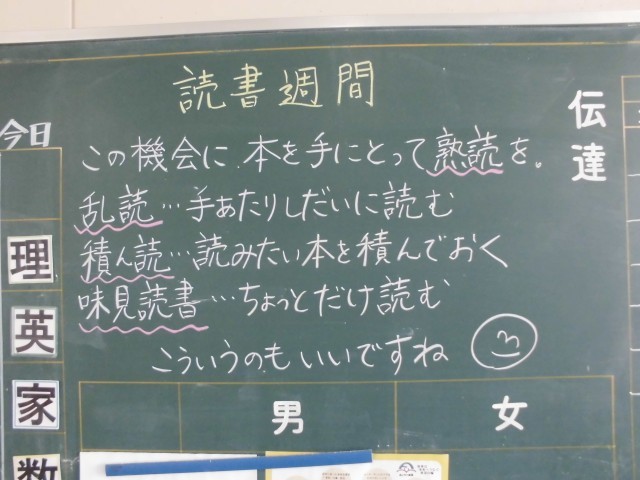 読書週間
伝達
今日
この機会に、本を手にとって熟読を。
乱読…手あたりしだいに読む
積ん読…読みたい本を積んでおく
味見読書…ちょっとだけ読む
こういうのもいいですね
理
英
家
数
男
女